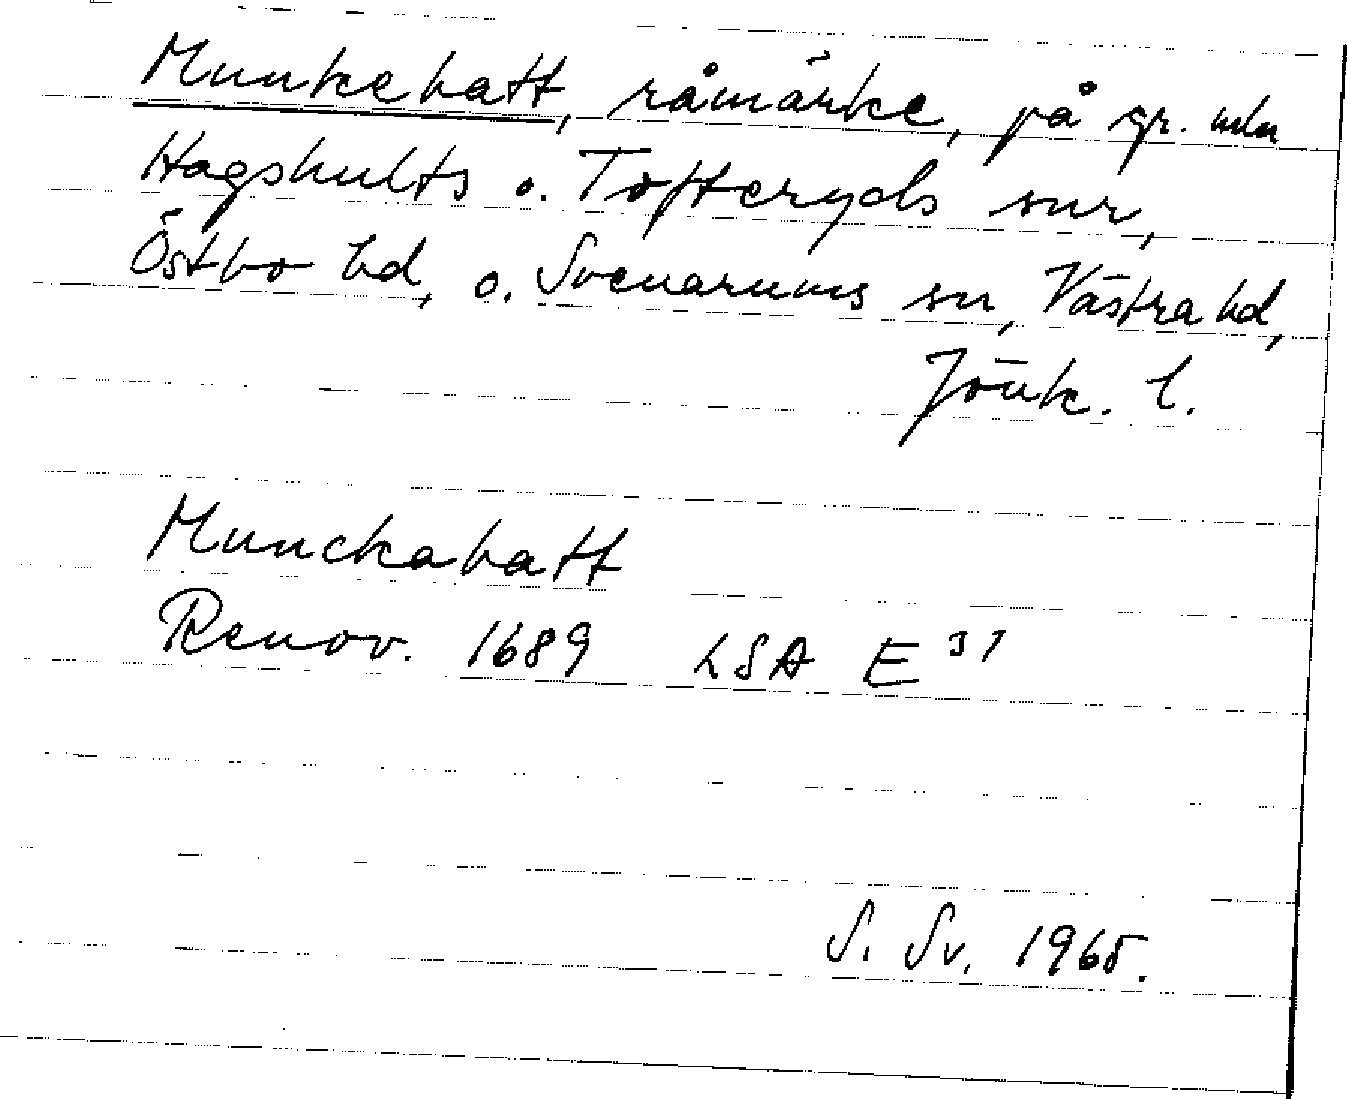 Munkehatt, råmärke, på gr. mln
Hagshults o. Tofteryds snr,
Östbo hd, o. Svenarums sn, Västra hd,
Jönk. l.
Munckahatt
Renov. 1689 LSA E 31
S. Sv. 1965.